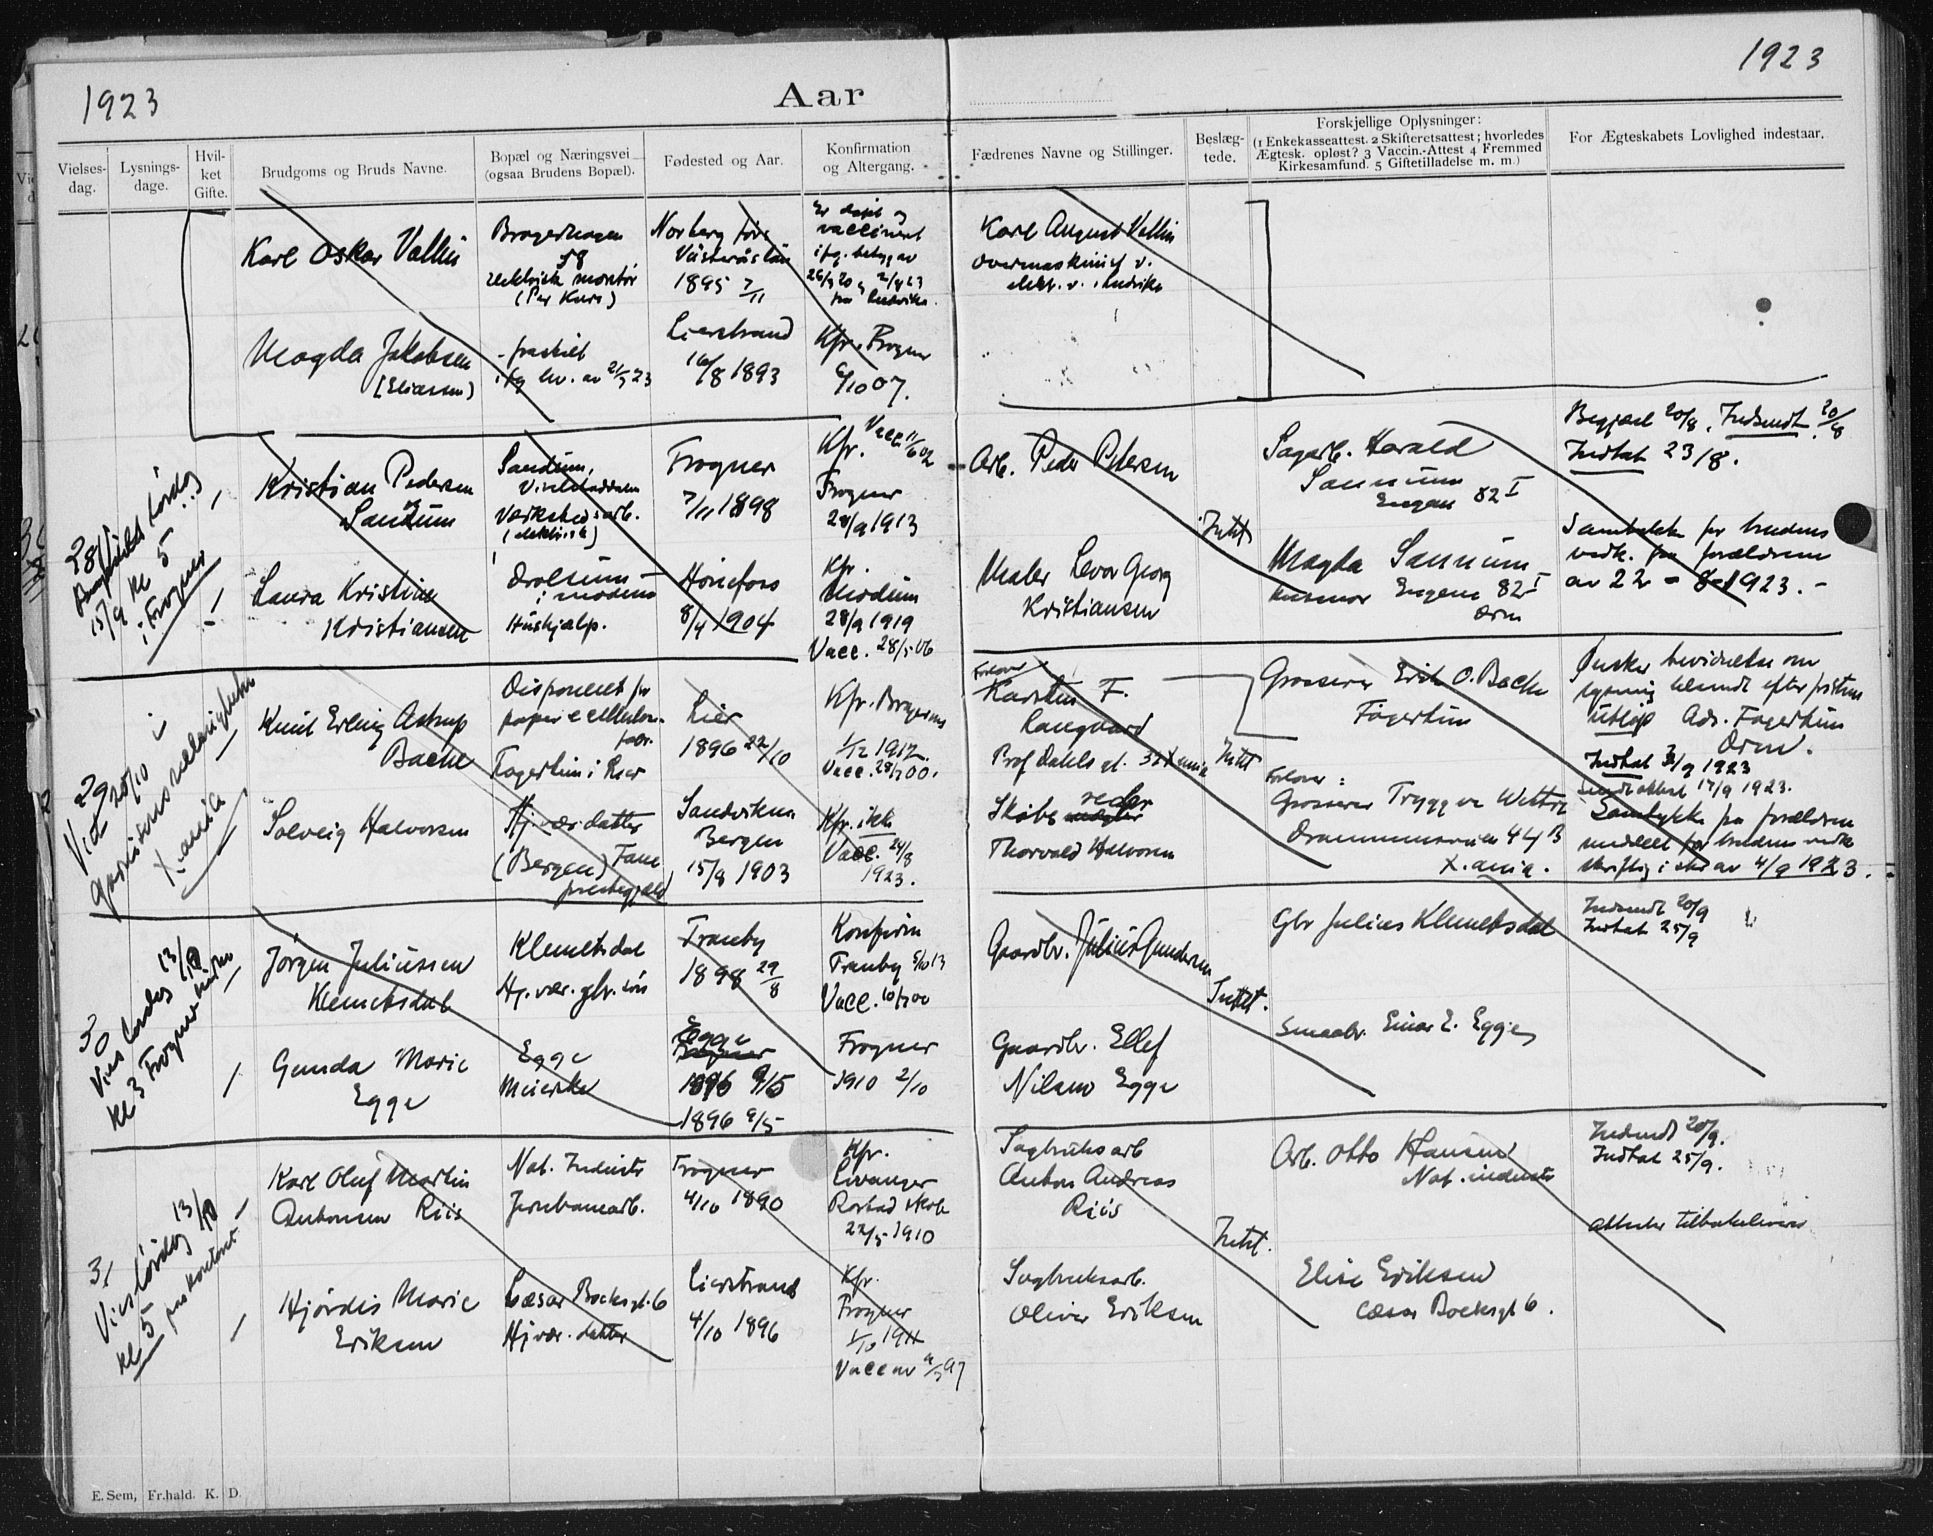 1923
Aar
1923
Vielses-
dag.
Lysnings-
dage.
Hvil-
ket
Gifte.
Brudgoms og Bruds Navne.
Bopæl og Næringsvei
(ogsaa Brudens Bopæl).
Fødested og Aar.
Konfirmation
og Altergang.
Fædrenes Navne og Stillinger.
Beslæg-
tede.
Forskjellige Oplysninger:
(1 Enkekasseattest. 2 Skifteretsattest; hvorledes
Ægtesk. opløst? 3 Vaccin.-Attest 4 Fremmed
Kirkesamfund. 5 Giftetilladelse m. m.)
For Ægteskabets Lovlighed indestaar.
Karl Oskar Vallin
Bragerhagen
58
elektrisk montør
(Per Kure)
Norberg
1895 7/11
vaccineret
Karl August Vallin
overmaskinist v.
Magda Jakobsen
(Eliassen)
- fraskilt
ifg bev. av 21/3 23
Lierstrand
16/8 1893
Kfr. Frogner
07.
28
15/9 kl 5
i Frogner
Kristian Pedersen
Sandum
Sandum,
Verkstedsarb.
(elektrisk)
Frogner
7/11 1898
Kfr.
Vacc. 11/6 02
Frogner
28/9 1913
Arb. Peder Petersen
Intet
Sagarb. Harald
Sannum
Engen 82 I
Begjært 20/8. Indsendt 20/8
Indtat 23/8.
Laura Kristine
Kristiansen
i Modum
Hushjælp.
Hønefoss
8/4 1904
Kfr.
Modum
28/9 1919
Vacc. 28/5 06
Maler Levor Georg
Kristiansen
Magda Sannum
husmor Engene 82 I
Drm
Samtykke for brudens
vedk. fra forældrene
av 22 - 8 - 1923. -
29
Viet 20/10 i
garnisonsmenigheten
X.ania
Knut Erling Astrup
Bache
Disponent for
papir & cellulose-
Fagertun i Lier
Lier
1896 22/10
Kfr. Bragernes
1/12 1912
Vacc. 28/7 00.
Forlover
Karsten F.
Langaard
Prof Dahls gt. 32 X.ania
Intet
Grosserer Erik O. Bache
Fagertun
Ønsker bevidnelse om
lysning tilsendt efter fristens
utløp Adr. Fagertun
Drm.
Indtat 3/9 1923
Sendt attest 17/9 1923.
Solveig Halvorsen
Hj. vær. datter
(Bergen) Fane
prestegjæld
Sandviken
Bergen
15/8 1903
Kfr. ikke
Vacc. 24/8
1923.
Skibsreder
Thorvald Halvorsen
Forlover:
Grosserer Tryggve Wettre
Drammensveien 44 B
X.ania.
Samtykke fra forældrene
meddelt for brudens vedk
skriftlig i skr av 4/9 1923.
30
Vies lørdag 13/10
kl 3 Frogner kirke
Jørgen Juliussen
Klemetsdal
Klemetsdal
Hj. vær. gbr. søn
Tranby
1898 29/8
Konfirm
Tranby 5/10 13
Vacc. 10/7 00
Gaardbr. Julius Gundersen
Intet.
Gbr Julius Klemetsdal
Indsendt 20/9
Indtat 25/9
Gunda Marie
Egge
Egge
Meierske
Egge
1896 9/5
1896 9/5
Frogner
1910 2/10
Gaardbr. Ellef
Nilsen Egge
Smaabr. Einar E. Egge
31
Vies lørdag 13/10
kl 5 paa kontoret
Karl Oluf Martin
Antonsen Riis
Nat. Industri
Jernbanearb.
Frogner
4/10 1890
Kfr.
Levanger
Rostad skole
22/5 1910
Sagbruksarb
Anton Andreas
Riis
Intet.
Arb. Otto Hansen
Nat. industri
Indsendt 20/9.
Indtat 25/9.
Attester tilbakelevert
Hjørdis Marie
Eriksen
Cæsar Boeksgt. 6
Hj vær. datter
Lierstrand
4/10 1896
Kfr.
Frogner
1/10 1911
Vacc av 9/7 97
Sagbruksarb.
Oliver Eriksen
Elise Eriksen
Cæsar Boeksgt 6.
E. Sem, Fr.hald. K. D.